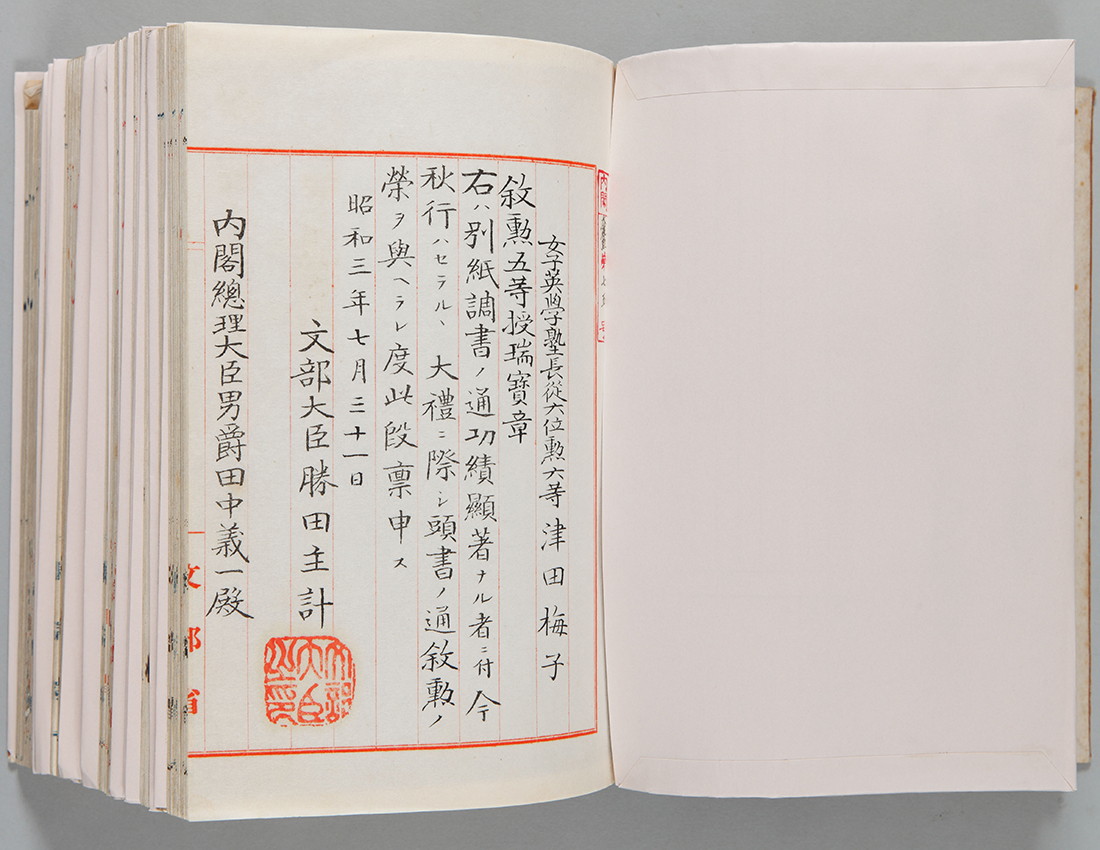 女子英學塾長從六位勲六等 津田梅子
敘勲五等授瑞寶章
右ハ別紙調書ノ通功績顯著ナル者ニ付今
秋行ハセラルヽ大禮ニ際シ頭書ノ通敘勲ノ
榮ヲ與ヘラレ度此段稟申ス
昭和三年七月三十一日
文部大臣勝田主計
文部大臣之印
內閣總理大臣男爵田中義一殿
文部省